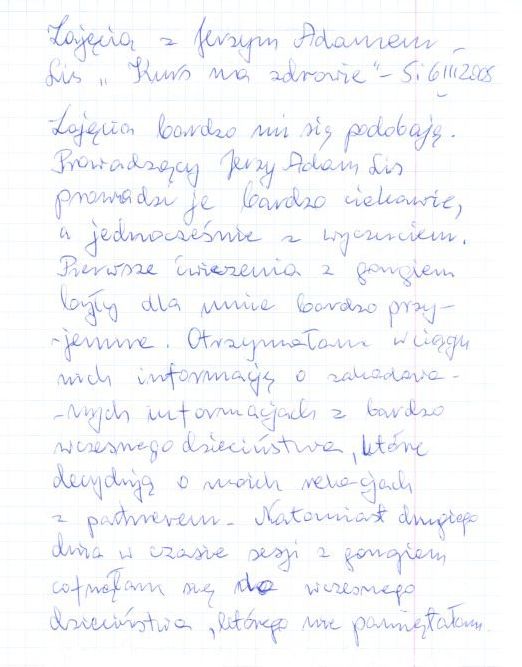 Zajęcia z Jerzym Adamem
Lis „Kurs na zdrowie" – 5i6III2005
Zajęcia bardzo mi się podobają.
Prowadzący Jerzy Adam Lis
prowadzi je bardzo ciekawie,
a jednocześnie z wyczuciem.
Pierwsze ćwiczenia z gongiem
były dla mnie bardzo przy-
-jemne. Otrzymałam w ciągu
nich informację o zakodowa-
-nych informacjach z bardzo
wczesnego dzieciństwa, które
decydują o moich relacjach
z partnerem. Natomiast drugiego
dnia w czasie sesji z gongiem
cofnęłam się do wczesnego
dzieciństwa, którego nie pamiętałam.